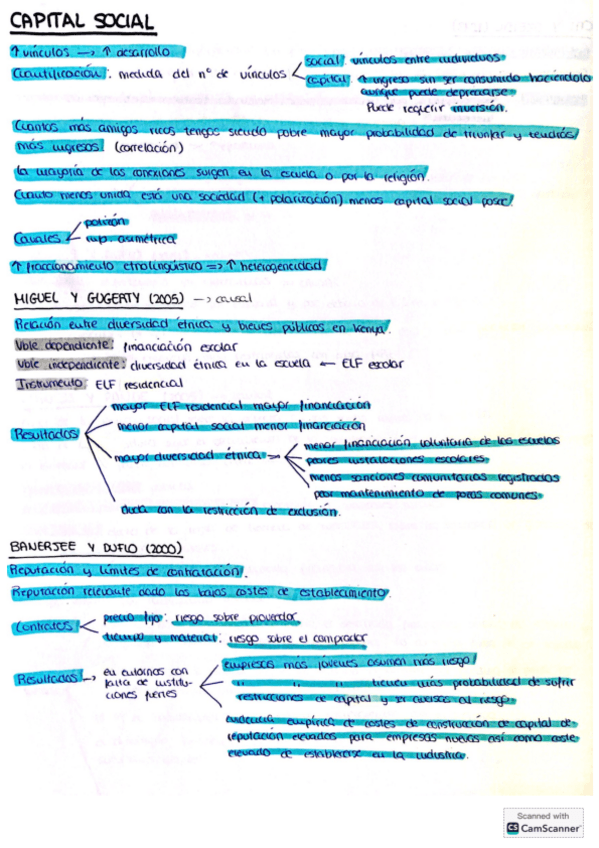 CAPITAL SOCIAL
↑ vínculos → ↑ desarrollo
Cuantificación: medida del nº de vínculos
social: vínculos entre individuos
capital: ↑ ingreso sin ser consumido haciéndolo
aunque puede depreciarse.
Puede requerir inversión.
Cuantos más amigos ricos tengas siendo pobre mayor probabilidad de triunfar y tendrás
más ingresos. (correlación)
La mayoría de las conexiones surgen en la escuela o por la religión.
Cuanto menos unida está una sociedad (+ polarización) menos capital social posee.
Canales
polizón
inf. asimétrica
↑ fraccionamiento etnolingüístico ⇒ ↑ heterogeneidad
MIGUEL Y GUGERTY (2005) → causal
Relación entre diversidad étnica y bienes públicos en Kenya.
Vble dependiente: financiación escolar
Vble independiente: diversidad étnica en la escuela ← ELF escolar
Instrumento: ELF residencial
Resultados
mayor ELF residencial mayor financiación
menor capital social menor financiación
mayor diversidad étnica ⇒
menor financiación voluntaria de las escuelas
peores instalaciones escolares.
menos sanciones comunitarias registradas
peor mantenimiento de pozos comunes.
Duda con la restricción de exclusión.
BANERJEE Y DUFLO (2000)
Reputación y límites de contratación.
Reputación relevante dado los bajos costes de establecimiento.
Contratos
precio fijo: riesgo sobre proveedor
tiempo y material: riesgo sobre el comprador
Resultados → en entornos con
falta de institu-
ciones fuertes
empresas más jóvenes asumen más riesgo
" " " tienen más probabilidad de sufrir
restricciones de capital y ser adversas al riesgo.
evidencia empírica de costes de construcción de capital de
reputación elevados para empresas nuevas así como coste
elevado de establecerse en la industria.
Scanned with
CS CamScanner